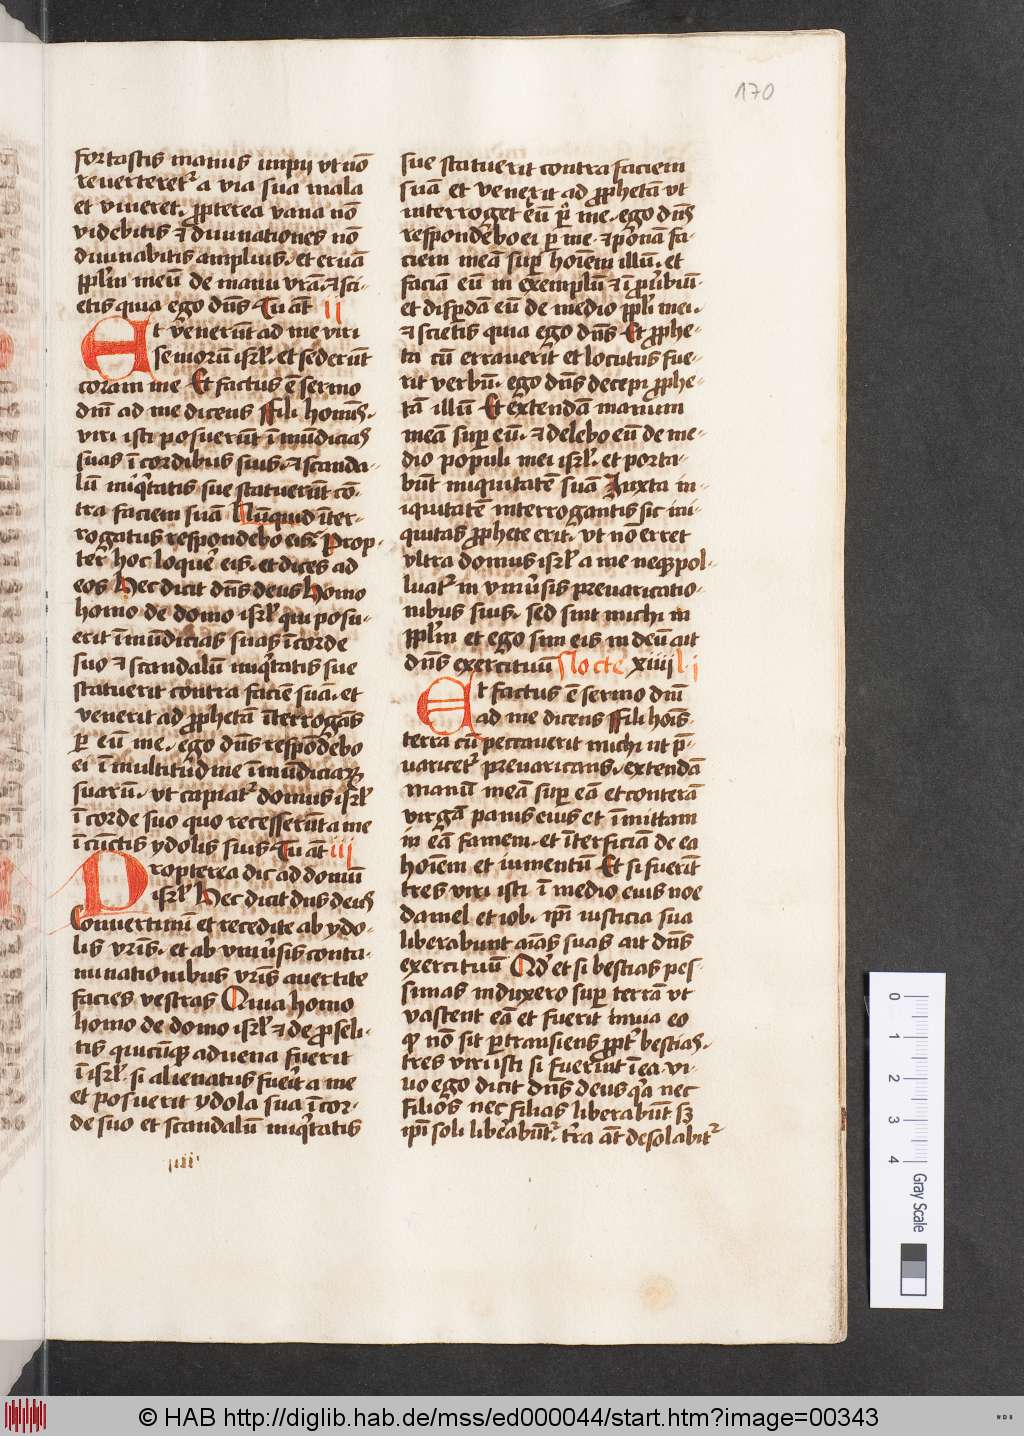 170
fortastis manus impij vt nō
reuerteret᷒ a via sua mala
et viueret. ꝓpterea vana nō
videbitis ⁊ diuinationes nō
diuinabitis amplius. et eruā
ppl̄m meū de manu vrā. ⁊ sci-
etis quia ego dn̄s Tu aūt ij
Et venerūt ad me viri
seniorū isrl̄. et sederūt
coram me Et factus ē sermo
dnī ad me dicens ffili homīs.
viri isti posuerūt ī mūdicias
suas ī cordibus suis. ⁊ scanda-
lū iniq̇tatis sue statuerūt cō-
tra faciem suā Nūquid īter-
rogatus respondebo eis. Prop-
ter hoc loquere eis. et dices ad
eos Hec dicit dn̄s deus Homo
homo de domo isrl̄ qui posu-
erit īmūdicias suas ī corde
suo ⁊ scandalū iniq̇tatis sue
statuerit contra faciē suā. et
venerit ad ꝓphetā īterrogās
ꝑ eū me. ego dn̄s respōdebo
ei ī multitud̄ine īmūdiciaꝝ
suarū. vt capiat᷒ domus isrl̄
ī corde suo quo recesserūt a me
ī cūctis ydolis suis Tu aūt iij
Propterea dic ad domū
isrl̄ Hec dicit dn̄s deus
Conuertimī et recedite ab ydo-
lis vrīs. et ab vniūsis conta-
minationibus vrīs auertite
facies vestras Quia homo
homo de domo isrl̄ ⁊ de proseli-
tis quicūqꝫ aduena fuerit
ī isrl̄. si alienatus fueīt a me
et posuerit ydola sua ī cor-
de suo et scandalū iniq̇tatis
iiii
sue statuerit contra faciem
suā et venerit ad ꝓphetā vt
interroget eū ꝑ me. ego dn̄s
respondebo ei ꝑ me. ⁊ pōnā fa-
ciem meā suꝑ hoiēm illū. et
faciā eū in exemplū ⁊ ī ꝓūbiū.
et disꝑdā eū de medio ppl̄i mei.
⁊ scietis quia ego dn̄s Et ꝓphe-
ta cū errauerit et locutus fue-
rit verbū. ego dn̄s decepi ꝓphe-
tā illū Et extendā manum
meā suꝑ eū. ⁊ delebo eū de me-
dio populi mei isrl̄. et porta-
būt iniquitatē suā Iuxta in-
iquitatē interrogantis sic ini-
quitas ꝓphete erit. vt nō erret
vltra domus isrl̄ a me neqꝫ pol-
luat᷒ in vniūsis preuaricatio-
nibus suis. sed sint michi in
ppl̄m et ego sim eis in deū ait
dn̄s exercituū Nocte xiiii l i
Et factus ē sermo dnī
ad me dicens ffili hoīs.
terra cū peccauerit michi ut p̄-
uaricet᷒ preuaricans. extendā
manū meā suꝑ eā et conterā
virgā panis eius et īmittam
in eā famem. et īterficiā de ea
hoīem et iumentū Et si fuerīt
tres viri isti ī medio eius noe
daniel et iob. ipī iusticia sua
liberabunt aīas suas ait dn̄s
exercituū Qd̓ et si bestias pes-
simas induxero suꝑ terrā vt
vastent eā et fuerit inuia eo
ꝙ nō sit ꝑtransiens ꝓpt̓ bestias.
tres viri isti si fuerint ī ea. vi-
uo ego dicit dn̄s deus q̇a nec
filios nec filias liberabūt sꝫ
ipī soli liberabūt᷒. tr̄a aūt desolabit᷒
0
1
2
3
4
Gray Scale
© HAB http://diglib.hab.de/mss/ed000044/start.htm?image=00343